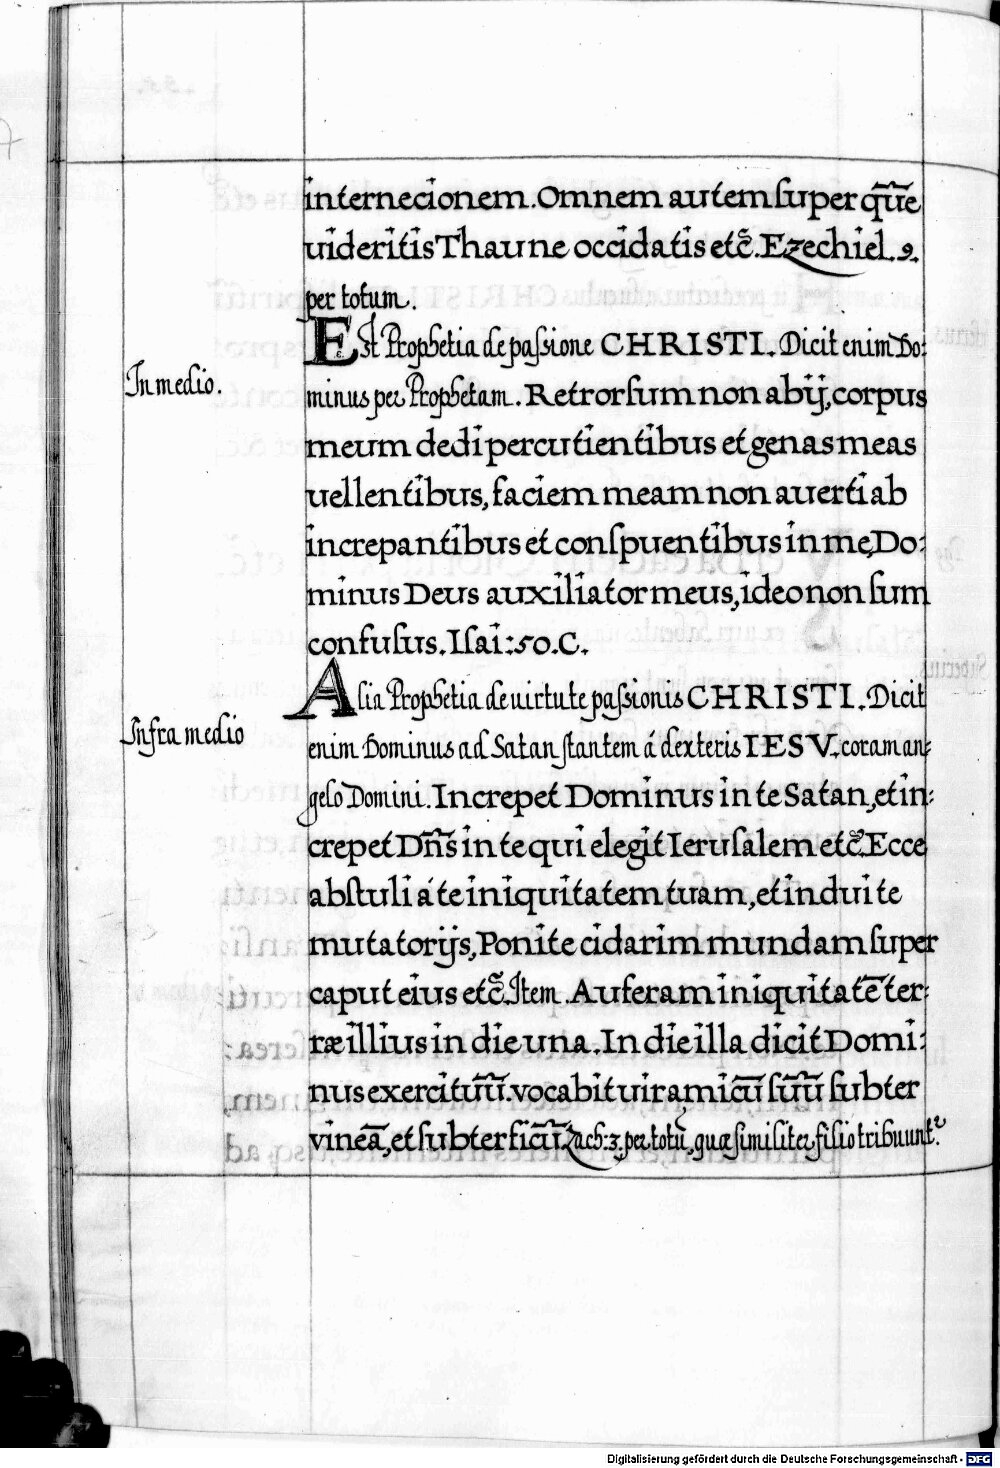 internecionem. Omnem autem super qu̅e̅
uideritis Thau ne occidatis etc̃. Ezechiel. 9.
per totum.
Est Prophetia de passione CHRISTI. Dicit enim Do:
In medio.
minus per Prophetam. Retrorsum non abij, corpus
meum dedi percutientibus et genas meas
uellentibus, faciem meam non auerti ab
increpantibus et conspuentibus in me, Do:
minus Deus auxiliator meus, ideo non sum
confusus. Isai: 50. C.
Alia Prophetia de uirtute passionis CHRISTI. Dicit
Infra medio
enim Dominus ad Satan stantem à dexteris IESV, coram an:
gelo Domini. Increpet Dominus in te Satan, et in:
crepet Dn̅s̅ in te qui elegit Ierusalem etc̃. Ecce
abstuli à te iniquitatem tuam, et indui te
mutatorijs, Ponite cidarim mundam super
caput eius etc̃. Item. Auferam iniquitatē ter:
ræ illius in die una. In die illa dicit Domi:
nus exercituū. vocabit uir amicū suū subter
vineā, et subter ficū. Zach: 3. per totū, quæ similiter filio tribuunt.
Digitalisierung gefördert durch die Deutsche Forschungsgemeinschaft - DFG